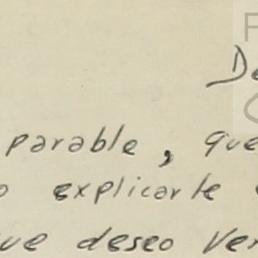 De
parable, que
o explicarte
que deseo ver